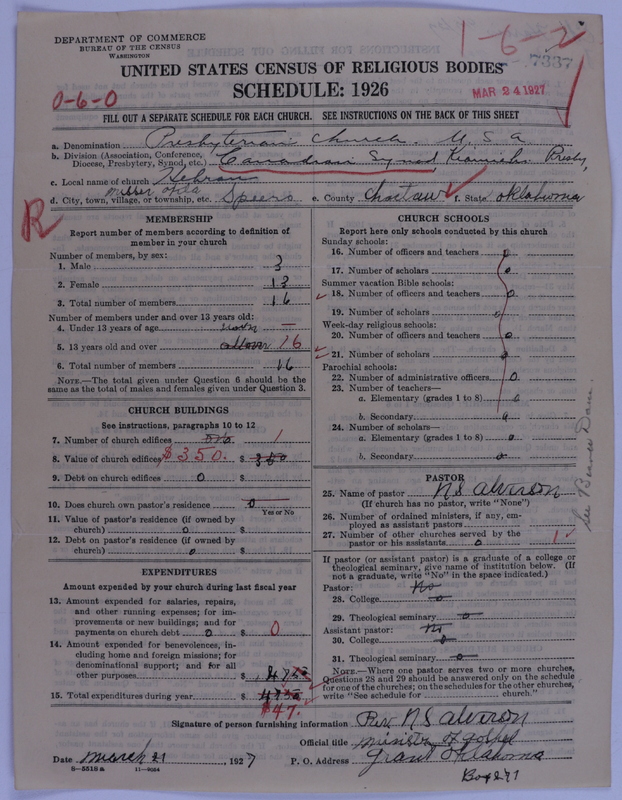 DEPARTMENT OF COMMERCE
BUREAU OF THE CENSUS
WASHINGTON
1-6-2
7337
UNITED STATES CENSUS OF RELIGIOUS BODIES
SCHEDULE: 1926
MAR 24 1927
0-6-0
FILL OUT A SEPARATE SCHEDULE FOR EACH CHURCH. SEE INSTRUCTIONS ON THE BACK OF THIS SHEET
a. Denomination Presbyterian Church. U.S.A
b. Division (Association, Conference, Diocese, Presbytery, Synod, etc.) Canadian Synod, Presby,
c. Local name of church Hebron
d. City, town, village, or township, etc. Speers e. County Choctaw f. State Oklahoma
R
MEMBERSHIP
Report number of members according to definition of member in your church
Number of members, by sex:
1. Male 3
2. Female 13
3. Total number of members 16
Number of members under and over 13 years old:
4. Under 13 years of age —
5. 13 years old and over all over 16
6. Total number of members 16
NOTE.—The total given under Question 6 should be the same as the total of males and females given under Question 3.
CHURCH BUILDINGS
See instructions, paragraphs 10 to 12
7. Number of church edifices one 1
8. Value of church edifices $350. $ 350
9. Debt on church edifices 0 $
10. Does church own pastor's residence 0
Yes or No
11. Value of pastor's residence (if owned by church) 0 $
12. Debt on pastor's residence (if owned by church) 0 $
EXPENDITURES
Amount expended by your church during last fiscal year
13. Amount expended for salaries, repairs, and other running expenses; for improvements or new buildings; and for payments on church debt 0 $ 0
14. Amount expended for benevolences, including home and foreign missions; for denominational support; and for all other purposes $ 47
15. Total expenditures during year $ 47
$47.
CHURCH SCHOOLS
Report here only schools conducted by this church
Sunday schools:
16. Number of officers and teachers 0
17. Number of scholars 0
Summer vacation Bible schools:
18. Number of officers and teachers 0
19. Number of scholars 0
Week-day religious schools:
20. Number of officers and teachers 0
21. Number of scholars 0
Parochial schools:
22. Number of administrative officers 0
23. Number of teachers—
a. Elementary (grades 1 to 8) 0
b. Secondary 0
24. Number of scholars—
a. Elementary (grades 1 to 8) 0
b. Secondary 0
PASTOR
25. Name of pastor N S Alverson
(If church has no pastor, write "None")
26. Number of ordained ministers, if any, employed as assistant pastors
27. Number of other churches served by the pastor or his assistants 0 1
If pastor (or assistant pastor) is a graduate of a college or theological seminary, give name of institution below. (If not a graduate, write "No" in the space indicated.)
Pastor: No
28. College 0
29. Theological seminary 0
Assistant pastor: No
30. College 0
31. Theological seminary 0
NOTE.—Where one pastor serves two or more churches, Questions 28 and 29 should be answered only on the schedule for one of the churches; on the schedules for the other churches, write "See schedule for church."
Signature of person furnishing information Rev N S Alverson
Official title minister of gospel
Date March 21 1927 P. O. Address Grant Oklahoma
S-5518a 11-9034
Box 271
See Beaver Dam.